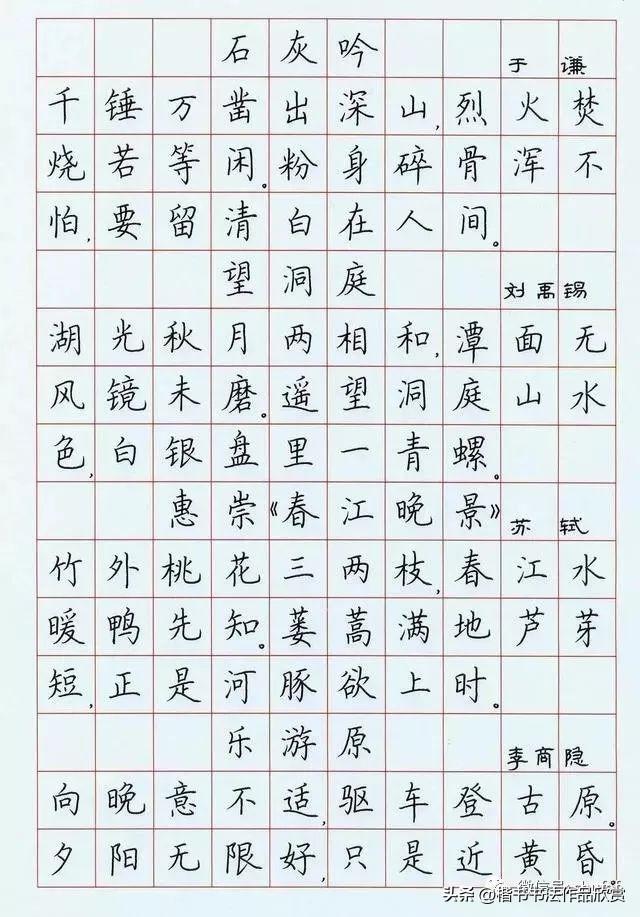 石灰吟 于谦
千锤万凿出深山,烈火焚
烧若等闲。粉身碎骨浑不
怕,要留清白在人间。
望洞庭 刘禹锡
湖光秋月两相和,潭面无
风镜未磨。遥望洞庭山水
色,白银盘里一青螺。
惠崇《春江晚景》苏轼
竹外桃花三两枝,春江水
暖鸭先知。蒌蒿满地芦芽
短,正是河豚欲上时。
乐游原 李商隐
向晚意不适,驱车登古原。
夕阳无限好,只是近黄昏
头条@楷书书法作品欣赏